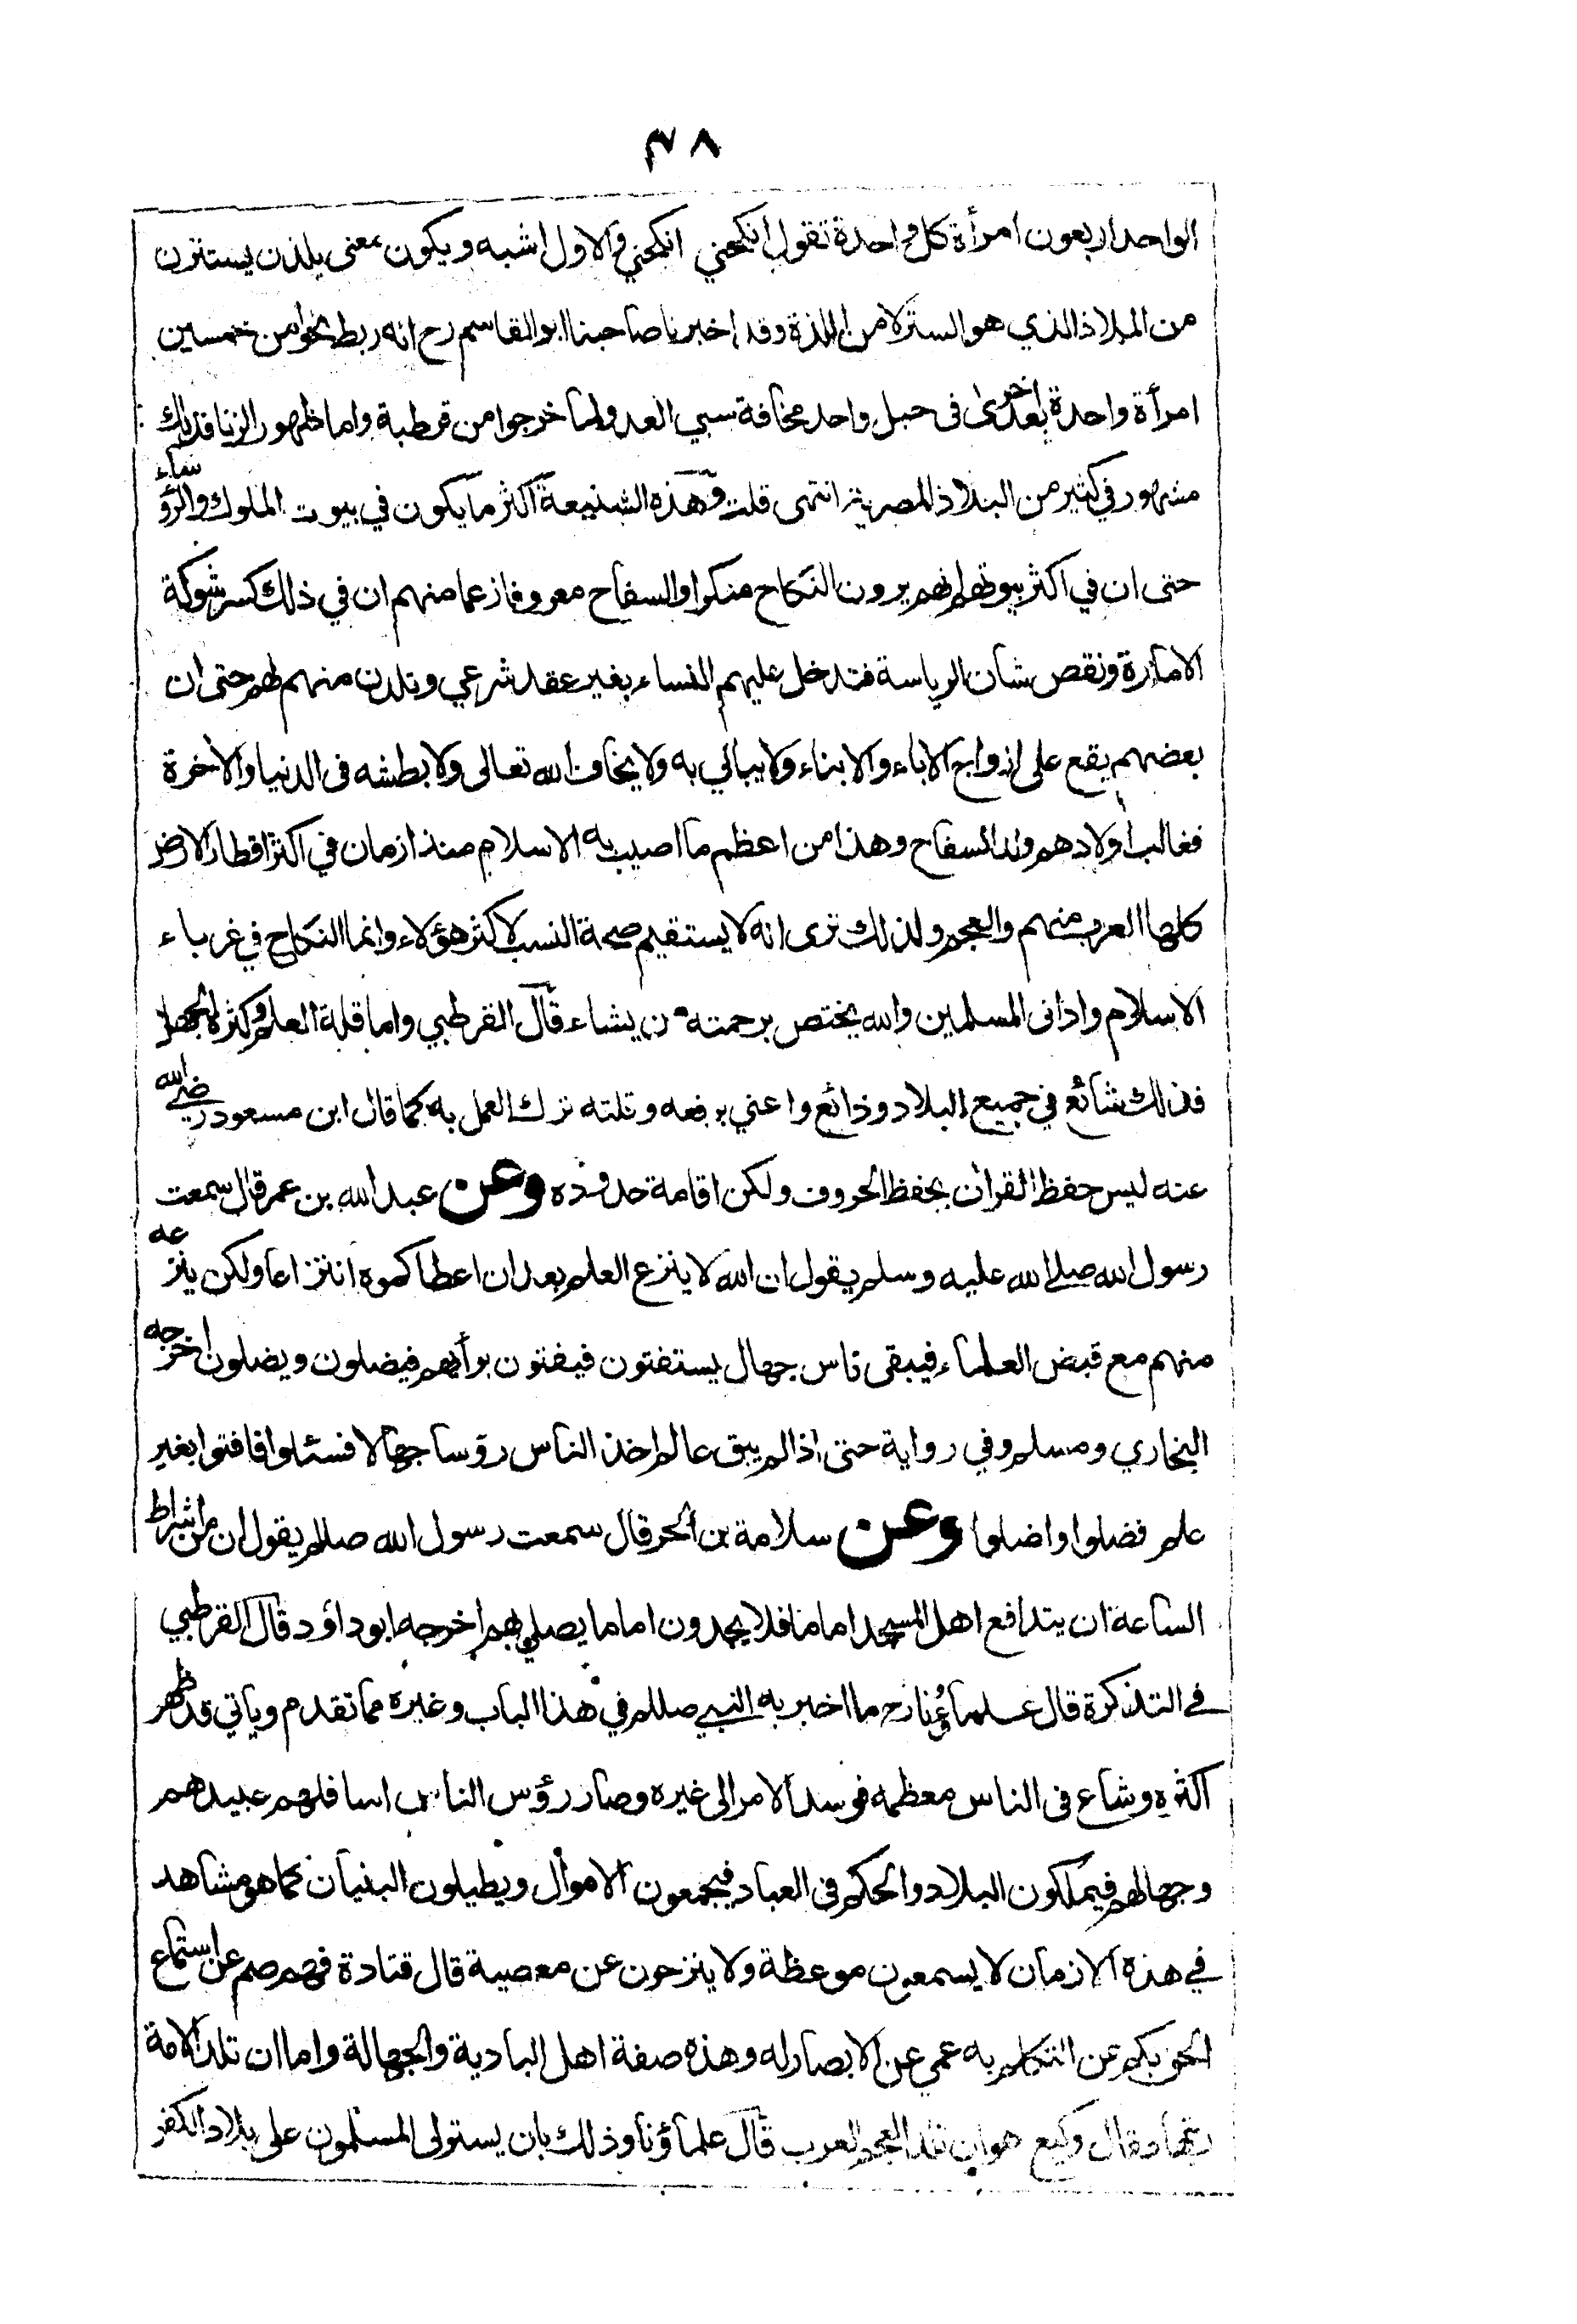 ٣٨
الواحد اربعون امرأة كل واحدة تقول انكحني انكحني والاول اشبه ويكون بمعنى يلذن يستترن
من الملاذ الذي هو الستر لا من اللذة وقد اخبرنا صاحبنا ابو القاسم رح انه ربط نحوا من خمسين
امرأة واحدة بعد اخرى فى حبل واحد مخافة سبي العدو لما خرجوا من قرطبة واما ظهور الزنا فذلك
مشهور في كثير من البلاد المصرية انتهى قلت وهذه الشنيعة اكثر ما يكون في بيوت الملوك والرؤساء
حتى ان في اكثر بيوتهم انهم يرون النكاح منكرا والسفاح معروفا زعما منهم ان في ذلك كسر شوكة
الامارة ونقص شان الرياسة فتدخل عليهم النساء بغير عقد شرعي وتلدن منهم لهم حتى ان
بعضهم يقع على ازواج الاباء والابناء ولا يبالي به ولا يخاف الله تعالى ولا بطشه فى الدنيا والاخرة
فغالب اولادهم ولد السفاح وهذا من اعظم ما اصيب به الاسلام منذ ازمان في اكثر اقطار الارض
كلها العرب منهم والعجم ولذلك ترى انه لا يستقيم صحة النسب لاكثر هؤلاء وانما النكاح في غرباء
الاسلام واداني المسلمين والله يختص برحمته من يشاء قال القرطبي واما قلة العلم وكثرة الجهل
فذلك شائع في جميع البلاد وذائع واعني برفعه وقلته ترك العمل به كما قال ابن مسعود رضي الله
عنه ليس حفظ القرأن بحفظ الحروف ولكن اقامة حدوده وعن عبد الله بن عمر قال سمعت
رسول الله صلى الله عليه وسلم يقول ان الله لا ينزع العلم بعد ان اعطاكموه انتزاعا ولكن ينزعه
منهم مع قبض العلماء فيبقى ناس جهال يستفتون فيفتون برأيهم فيضلون ويضلون اخرجه
البخاري ومسلم وفي رواية حتى اذا لم يبق عالم اخذ الناس رؤسا جهالا فسئلوا فافتوا بغير
علم فضلوا واضلوا وعن سلامة بن الحر قال سمعت رسول الله صللم يقول ان من اشراط
الساعة ان يتدافع اهل المسجد اماما فلا يجدون اماما يصلي بهم اخرجه ابو داؤد قال القرطبي
في التذكرة قال علماؤنا رح ما اخبر به النبي صللم في هذا الباب وغيره مما تقدم وياتي قد ظهر
اكثره وشاع فى الناس معظمه فوسد الامر الى غيره وصار رؤس الناس اسافلهم عبيدهم
وجهالهم فيملكون البلاد والحكم فى العباد فيجمعون الاموال ويطيلون البنيان كما هو مشاهد
في هذه الازمان لا يسمعون موعظة ولا ينزحون عن معصية قال قتادة فهم صم عن استماع
الحق بكم عن التكلم به عمي عن الابصار له وهذه صفة اهل البادية والجهالة واما ان تلد الامة
ربتها فقال وكيع هو ان تلد العجم العرب قال علماؤنا وذلك بان يستولى المسلمون على بلاد الكفر